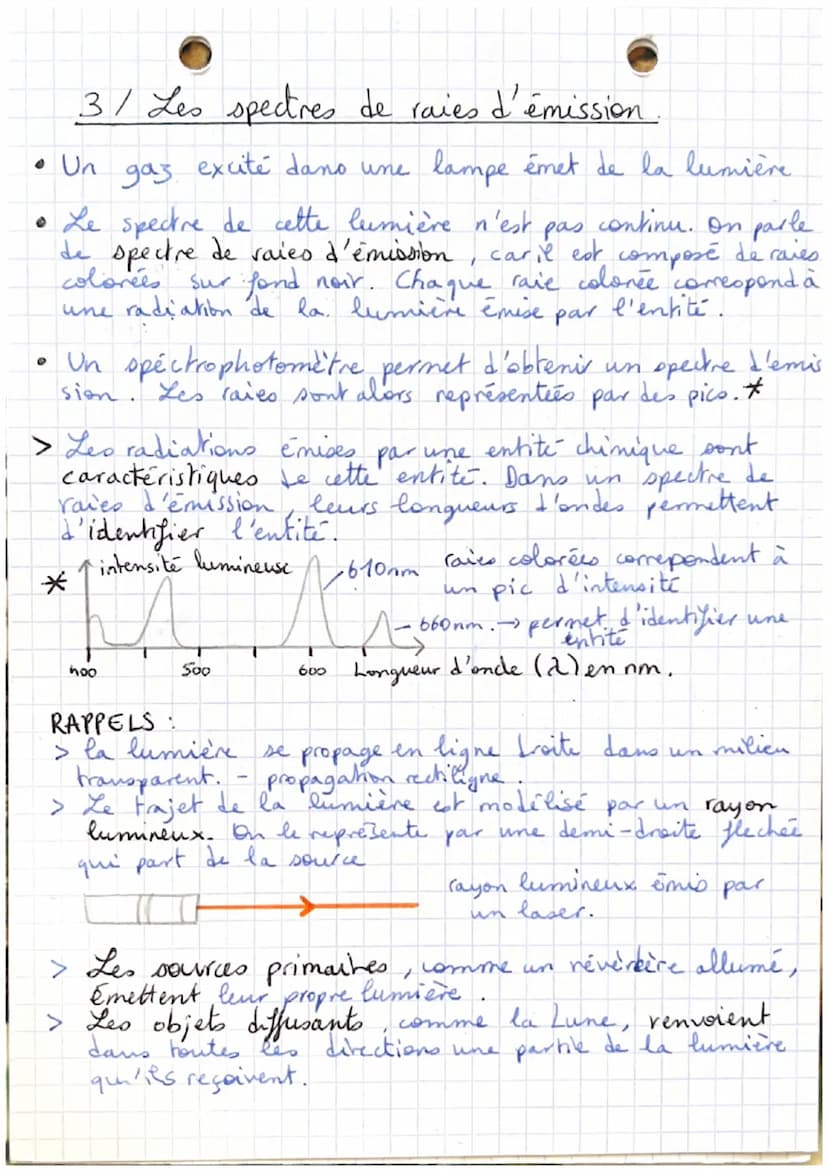 3/ Les spectres de raies d'émission.
• Un gaz excité dans une lampe émet de la lumière
• Le spectre de cette lumière n'est pas continu. On parle
de spectre de raies d'émission, car il est composé de raies
colorées sur fond noir. Chaque raie colorée correspond à
une radiation de la lumière émise par l'entité.
• Un spéctrophotomètre permet d'obtenir un spectre d'émis
sion. Les raies sont alors représentées par des pics.*
> Les radiations émises par une entité chimique sont
caractéristiques de cette entité. Dans un spectre de
raies d'émission, leurs longueurs d'ondes permettent
d'identifier l'entité.
* intensité lumineuse 610nm raies colorées correpondent à
un pic d'intensité
660nm. → permet d'identifier une
entité
400 500 600 Longueur d'onde (λ) en nm.
RAPPELS :
> la lumière se propage en ligne droite dans un milieu
transparent. - propagation rectiligne.
> Le trajet de la lumière est modélisé par un rayon
lumineux. On le représente par une demi-droite flechée
qui part de la source
rayon lumineux émis par
un laser.
> Les sources primaires, comme un révérbère allumé,
émettent leur propre lumière.
> Les objets diffusants, comme la Lune, renvoient
dans toutes les directions une partie de la lumière
qu'ils reçoivent.